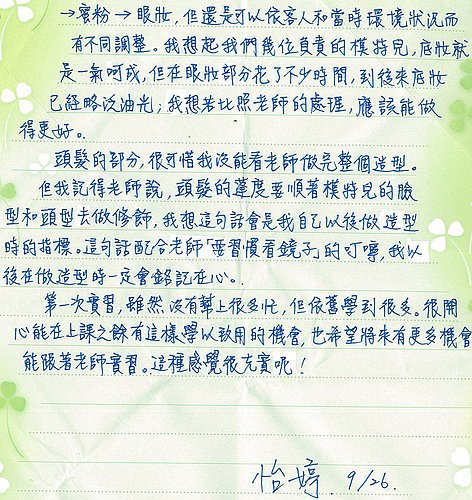 →蜜粉→眼妝，但還是可以依客人和當時環境狀況而
有不同調整。我想起我們幾位負責的模特兒，底妝就
是一氣呵成，但在眼妝部分花了不少時間，到後來底妝
已經略泛油光；我想若比照老師的處理，應該能做
得更好。
頭髮的部分，很可惜我沒能看老師做完整個造型。
但我記得老師說，頭髮的蓬度要順著模特兒的臉
型和頭型去做修飾，我想這句話會是我自己以後做造型
時的指標。這句話配合老師「要習慣看鏡子」的叮嚀，我以
後在做造型時一定會銘記在心。
第一次實習，雖然沒有幫上很多忙，但依舊學到很多。很開
心能在上課之餘有這樣學以致用的機會，也希望將來有更多機會
能跟著老師實習。這種感覺很充實呢！
怡婷 9/26.